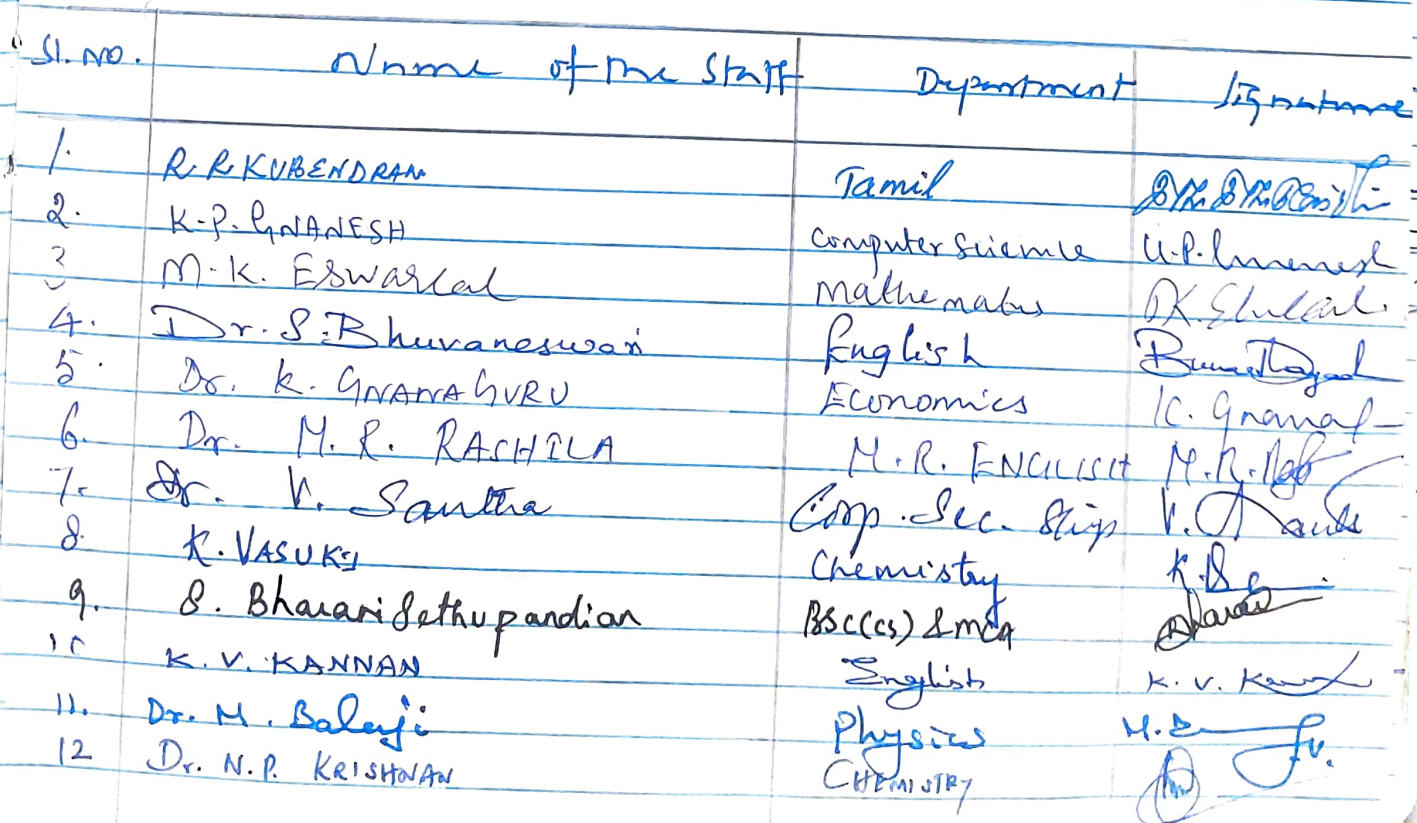 Sl. NO. Name of the Staff Department Signature
1. R. R. KUBENDRAN Tamil
2. K.P. GNANESH Computer Science K.P. Gnanesh
3 M.K. Eswarlal Mathematics
4. Dr. S. Bhuvaneswari English
5. Dr. K. GNANAGURU Economics K. Gnana
6. Dr. M. R. RASHILA M.R. ENGLISH M.R.
7. Dr. V. Santha Corp. Sec. Ship V. Santha
8. K. VASUKI Chemistry K.
9. S. Bharani Sethupandian BSC(CS) & MCA
10 K. V. KANNAN English K. V.
11. Dr. M. Balaji Physics M.B
12 Dr. N.P. KRISHNAN CHEMISTRY